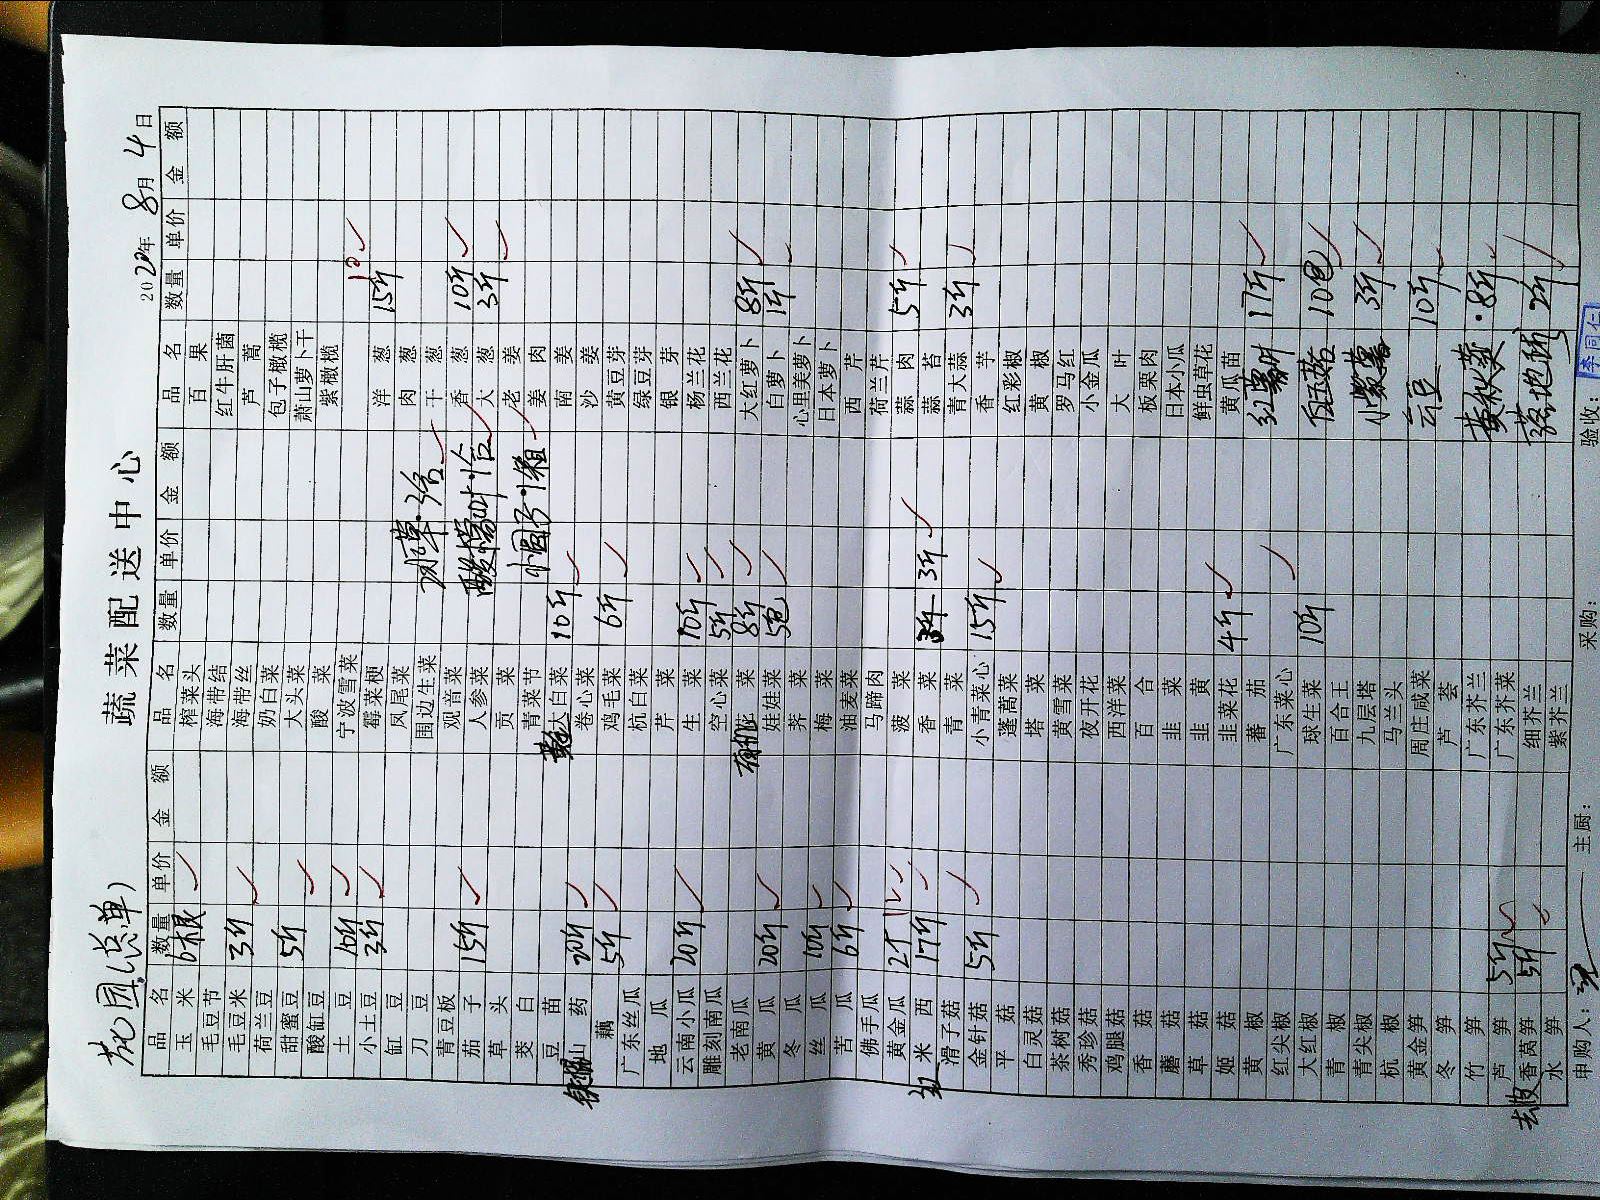 花园(总单)
蔬菜配送中心
2020年 8月 4日
品名 数量 单价 金额 品名 数量 单价 金额 品名 数量 单价 金额
玉米 6根 榨菜头 百果
毛豆节 海带结 红牛肝菌
毛豆米 3斤 海带丝 芦蒿
荷兰豆 奶白菜 包子橄榄
甜蜜豆 5斤 大头菜 萧山萝卜干
酸缸豆 酸菜 紫橄榄
土豆 10斤 宁波雪菜
小土豆 3斤 霉菜梗 洋葱 15斤
缸豆 凤尾菜 肉葱
刀豆 围边生菜 干葱
青豆板 观音菜 香葱 10斤
茄子 15斤 人参菜 大葱 3斤
草头 贡菜 老姜
茭白 青菜节 小圆子·1箱 姜肉
豆苗 大白菜 10斤 南姜
铁棍山药 20斤 卷心菜 沙姜
藕 5斤 鸡毛菜 6斤 黄豆芽
广东丝瓜 杭白菜 绿豆芽
地瓜 芹菜 银芽
云南小瓜 20斤 生菜 10斤 杨兰花
雕刻南瓜 空心菜 5斤 西兰花
老南瓜 有机花菜 8斤 大红萝卜 8斤
黄瓜 20斤 娃娃菜 5包 白萝卜 1斤
冬瓜 荠菜 心里美萝卜
丝瓜 10斤 梅菜 日本萝卜
苦瓜 6斤 油麦菜 西芹
佛手瓜 马蹄肉 荷兰芹
黄金瓜 2斤 菠菜 蒜肉 5斤
红米西 17斤 香菜 3斤 蒜苔
滑子菇 青菜 青大蒜 3斤
金针菇 5斤 小青菜心 15斤 香芋
平菇 蓬蒿菜 红彩椒
白灵菇 塔菜 黄椒
茶树菇 黄雪菜 罗马红
秀珍菇 夜开花 小金瓜
鸡腿菇 西洋菜 大叶
香菇 百合 板栗肉
蘑菇 韭菜 日本小瓜
草菇 韭黄 鲜虫草花
姬菇 韭菜花 4斤 黄瓜苗
黄椒 番茄 红薯叶 17斤
红尖椒 广东菜心
大红椒 球生菜 10斤 白玉菇 10包
青椒 百合王
青尖椒 九层塔 小紫薯 3斤
杭椒 马兰头
黄金笋 周庄咸菜 云豆 10斤
冬笋 芦荟
竹笋 广东芥兰 黄秋葵·8斤
芦笋 5斤 广东芥菜
去皮香莴笋 5斤 细芥兰 2斤
水笋 紫芥兰
申购人: 主厨: 采购: 验收: 李同仁